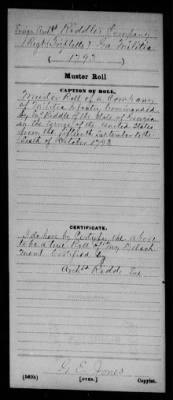 Riddle's Company
Ga. Militia
1793
Muster Roll
CAPTION OF ROLL.
Muster Roll of a Company
of Militia Infantry Commanded
by Riddle of the State of Georgia
in the Service of the United States
from the fifteenth September to the
of October 1793
CERTIFICATE.
I do hereby Certify the above
to be a true Roll of my Detach
ment Certified by
G. E. Jones
[OVER.]
Copyist.